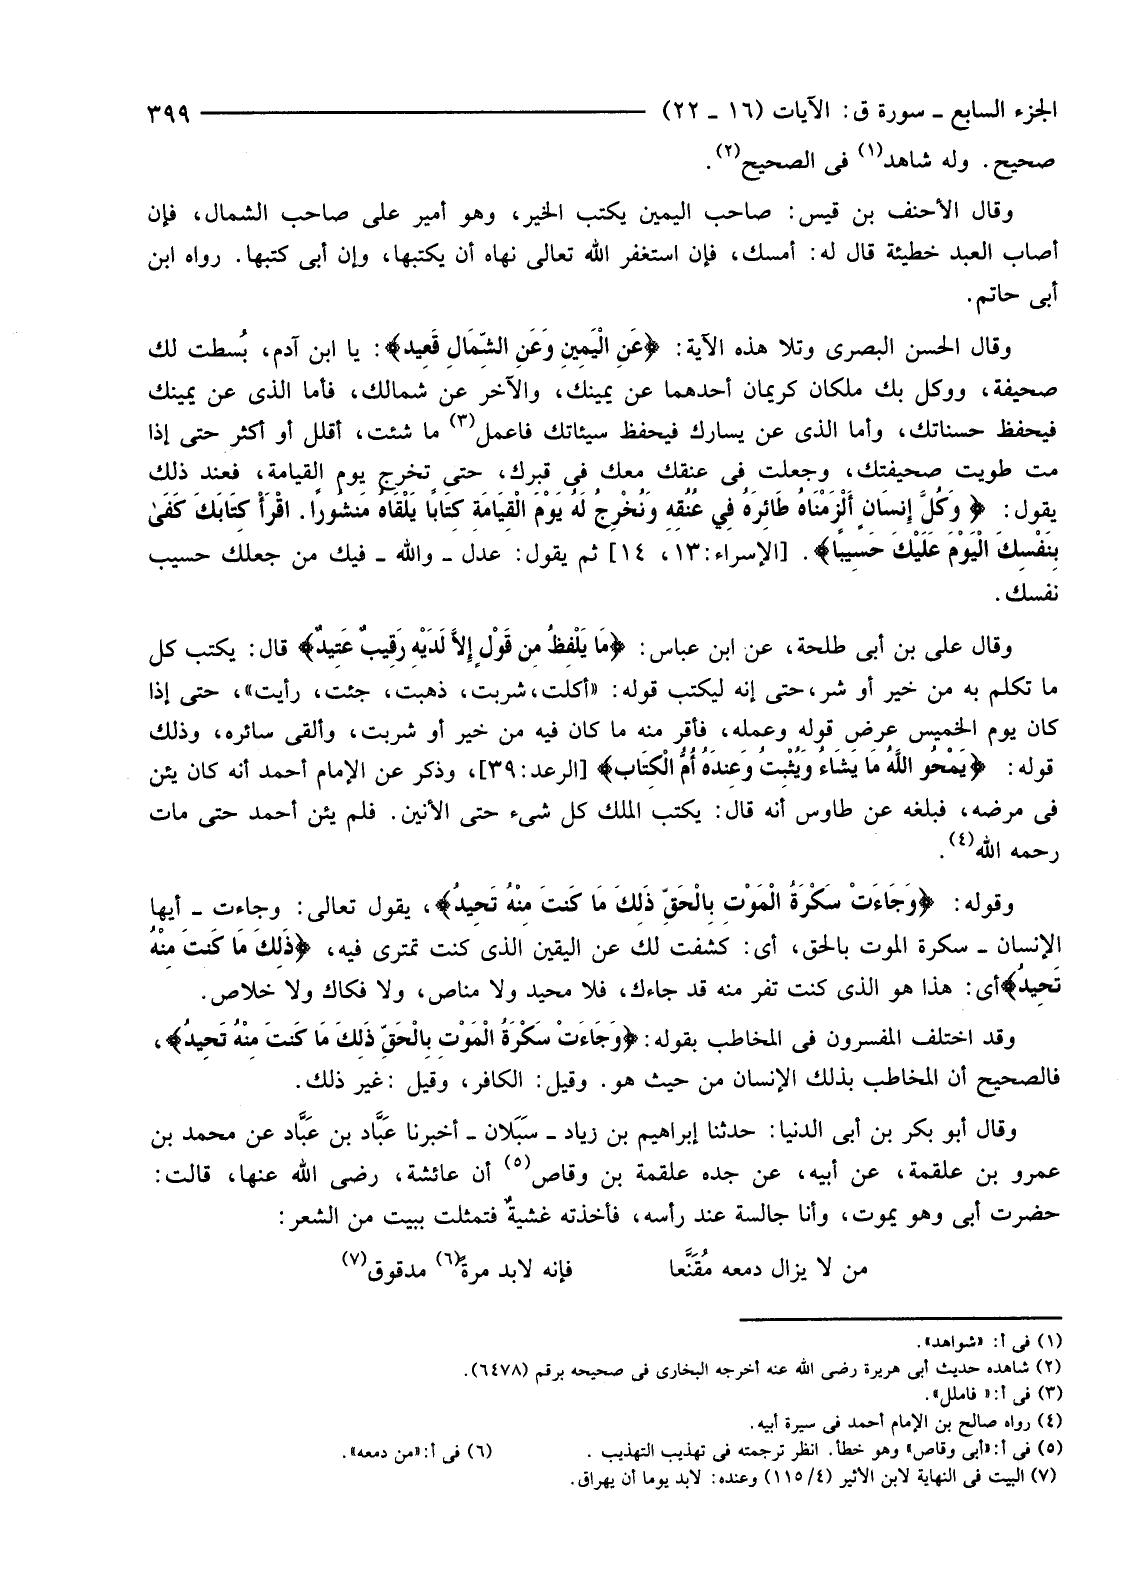 الجزء السابع ـ سورة ق: الآيات (١٦ ـ ٢٢) ٣٩٩
صحيح. وله شاهد(١) فى الصحيح(٢).
وقال الأحنف بن قيس: صاحب اليمين يكتب الخير، وهو أمير على صاحب الشمال، فإن
أصاب العبد خطيئة قال له: أمسك، فإن استغفر الله تعالى نهاه أن يكتبها، وإن أبى كتبها. رواه ابن
أبى حاتم.
وقال الحسن البصرى وتلا هذه الآية: ﴿عَنِ الْيَمِينِ وَعَنِ الشِّمَالِ قَعِيد﴾: يا ابن آدم، بُسطت لك
صحيفة، ووكل بك ملكان كريمان أحدهما عن يمينك، والآخر عن شمالك، فأما الذى عن يمينك
فيحفظ حسناتك، وأما الذى عن يسارك فيحفظ سيئاتك فاعمل(٣) ما شئت، أقلل أو أكثر حتى إذا
مت طويت صحيفتك، وجعلت فى عنقك معك فى قبرك، حتى تخرج يوم القيامة، فعند ذلك
يقول: ﴿ وَكُلَّ إِنسَانٍ أَلْزَمْنَاهُ طَائِرَهُ فِي عُنُقِهِ وَنُخْرِجُ لَهُ يَوْمَ الْقِيَامَةِ كِتَابًا يَلْقَاهُ مَنشُورًا. اقْرَأْ كِتَابَكَ كَفَىٰ
بِنَفْسِكَ الْيَوْمَ عَلَيْكَ حَسِيبًا﴾. [الإسراء:١٣، ١٤] ثم يقول: عدل ـ والله ـ فيك من جعلك حسيب
نفسك.
وقال على بن أبى طلحة، عن ابن عباس: ﴿مَا يَلْفِظُ مِن قَوْلٍ إِلاَّ لَدَيْهِ رَقِيبٌ عَتِيدٌ﴾ قال: يكتب كل
ما تكلم به من خير أو شر،حتى إنه ليكتب قوله: «أكلت،شربت، ذهبت، جئت، رأيت»، حتى إذا
كان يوم الخميس عرض قوله وعمله، فأقر منه ما كان فيه من خير أو شربت، وألقى سائره، وذلك
قوله: ﴿يَمْحُو اللَّهُ مَا يَشَاءُ وَيُثْبِتُ وَعِندَهُ أُمُّ الْكِتَابِ﴾ [الرعد:٣٩]، وذكر عن الإمام أحمد أنه كان يئن
فى مرضه، فبلغه عن طاوس أنه قال: يكتب الملك كل شىء حتى الأنين. فلم يئن أحمد حتى مات
رحمه الله(٤).
وقوله: ﴿وَجَاءَتْ سَكْرَةُ الْمَوْتِ بِالْحَقِّ ذَلِكَ مَا كُنتَ مِنْهُ تَحِيدُ﴾، يقول تعالى: وجاءت ـ أيها
الإنسان ـ سكرة الموت بالحق، أى: كشفت لك عن اليقين الذى كنت تمترى فيه، ﴿ذَلِكَ مَا كُنتَ مِنْهُ
تَحِيدُ﴾أى: هذا هو الذى كنت تفر منه قد جاءك، فلا محيد ولا مناص، ولا فكاك ولا خلاص.
وقد اختلف المفسرون فى المخاطب بقوله:﴿وَجَاءَتْ سَكْرَةُ الْمَوْتِ بِالْحَقِّ ذَلِكَ مَا كُنتَ مِنْهُ تَحِيدُ﴾،
فالصحيح أن المخاطب بذلك الإنسان من حيث هو. وقيل: الكافر، وقيل :غير ذلك.
وقال أبو بكر بن أبى الدنيا: حدثنا إبراهيم بن زياد ـ سَبَلان ـ أخبرنا عبَّاد بن عبَّاد عن محمد بن
عمرو بن علقمة، عن أبيه، عن جده علقمة بن وقاص(٥) أن عائشة، رضى الله عنها، قالت:
حضرت أبى وهو يموت، وأنا جالسة عند رأسه، فأخذته غشيةٌ فتمثلت ببيت من الشعر:
من لا يزال دمعه مُقَنَّعا فإنه لابد مرة(٦) مدقوق(٧)
(١) فى أ: «شواهد».
(٢) شاهده حديث أبى هريرة رضى الله عنه أخرجه البخارى فى صحيحه برقم (٦٤٧٨).
(٣) فى أ:« فاملل».
(٤) رواه صالح بن الإمام أحمد فى سيرة أبيه.
(٥) فى أ:«أبى وقاص» وهو خطأ. انظر ترجمته فى تهذيب التهذيب . (٦) فى أ:«من دمعه».
(٧) البيت فى النهاية لابن الأثير (٤/ ١١٥) وعنده: لابد يوما أن يهراق.